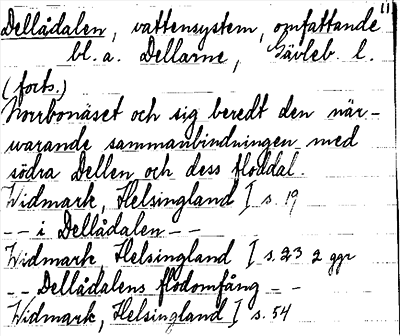 Dellådalen, vattensystem, omfattande
bl. a. Dellarne, Gävleb. l.
(forts.)
Norrbonäset och sig beredt den när-
warande sammanbindningen med
södra Dellen och dess floddal.
Widmark, Helsingland I s. 19
-- i Dellådalen --
Widmark, Helsingland I s. 23 2 ggr
-- Dellådalens flodomfång --
Widmark, Helsingland I s. 54